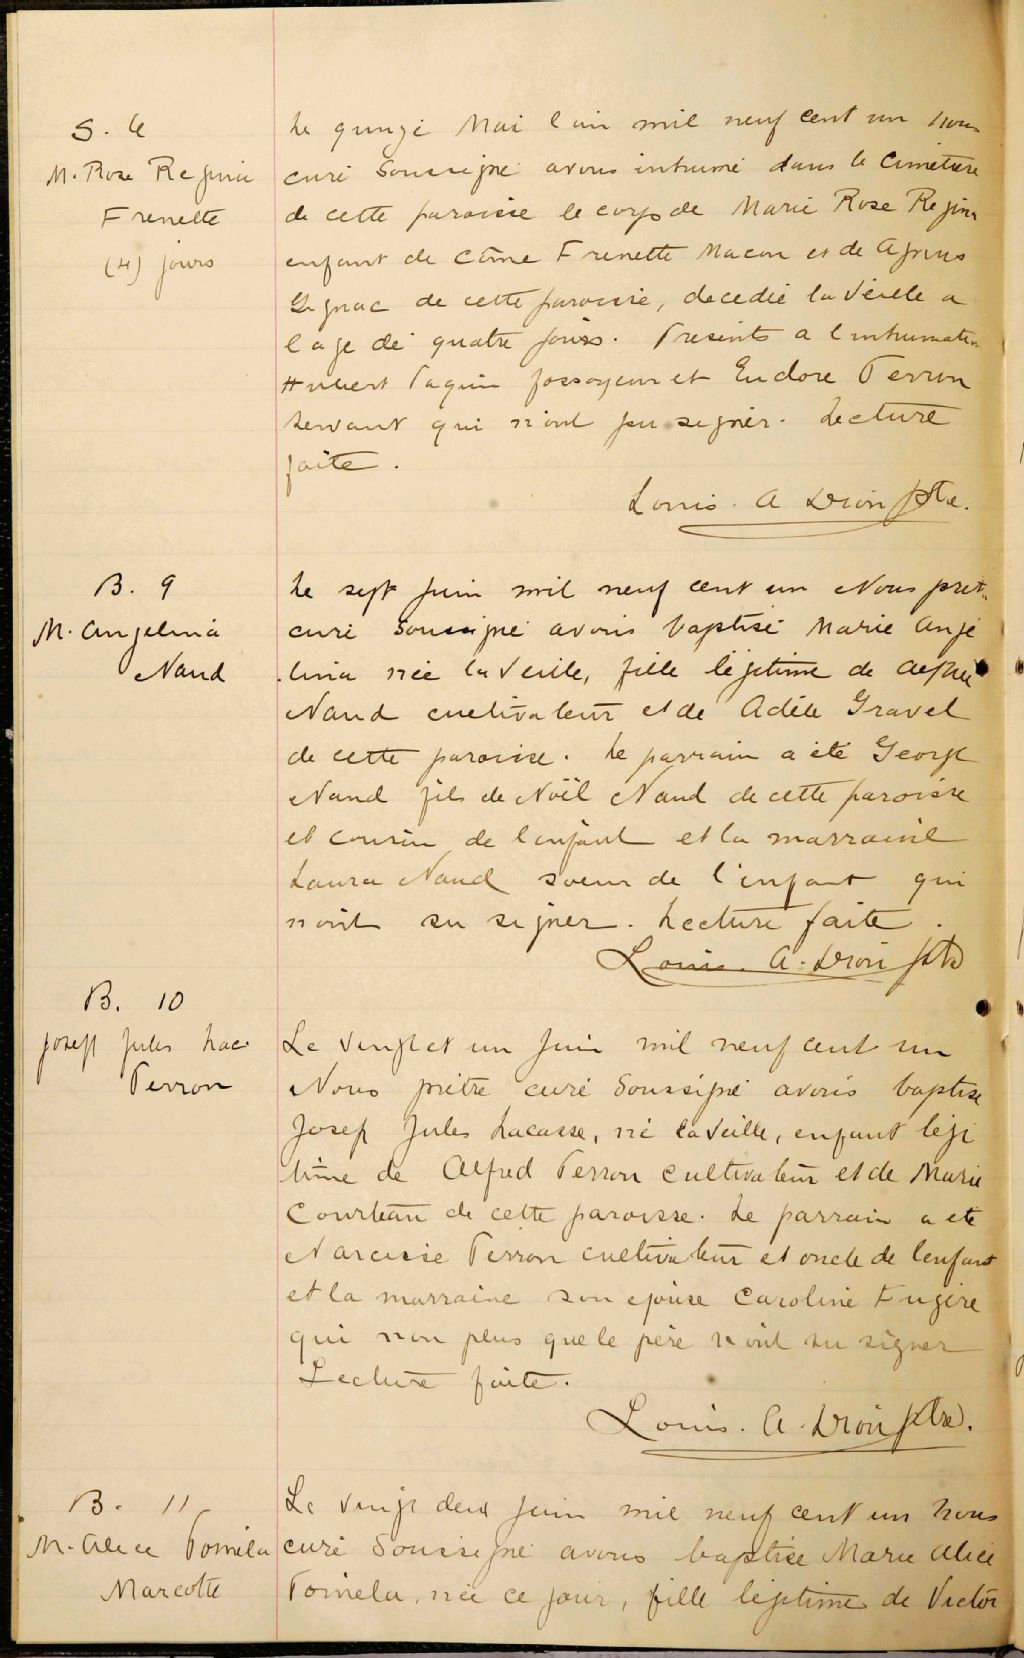 S. 6
M. Rose Regina
Frenette
(4) jours
Le quinze Mai l'an mil neuf cent un nous
curé Soussigné avons inhumé dans le Cimetiere
de cette paroisse le corps de Marie Rose Regina
enfant de Côme Frenette Macon et de Agnes
Gignac de cette paroisse, decedée la veille a
l age de quatre jours. Presents a l inhumation
Hubert Paquin fossoyeur et Eudore Perron
servant qui n'ont pu signer. Lecture
faite.
Louis. A Dion Ptre.
B. 9
M. Angelina
Naud
Le sept Juin mil neuf cent un Nous pretre
curé Soussigné avons baptisé Marie Angé
lina née la veille, fille légitime de
Naud cultivateur et de Adèle Gravel
de cette paroisse. Le parrain a été George
Naud fils de Noël Naud de cette paroisse
et cousin de l enfant et la marraine
Laura Naud soeur de l'enfant qui
n'ont su signer. Lecture faite.
Louis. A. Dion Ptre
B. 10
Joseph Jules Lac.
Perron
Le vingt et un Juin mil neuf cent un
Nous prêtre curé Soussigné avons baptisé
Josep Jules Lacasse, né la veille, enfant légi
time de Alfred Perron cultivateur et de Marie
Courteau de cette paroisse. Le parrain a été
Narcisse Perron cultivateur et oncle de l'enfant
et la marraine son epouse Caroline Fugère
qui non plus que le père n'ont su signer
Lecture faite.
Louis. A. Dion Ptre.
B. 11
M. Alice Pomela
Marcotte
Le vingt deux Juin mil neuf cent un nous
curé Soussigné avons baptisé Marie Alice
Pomela, née ce jour, fille légitime de Victor